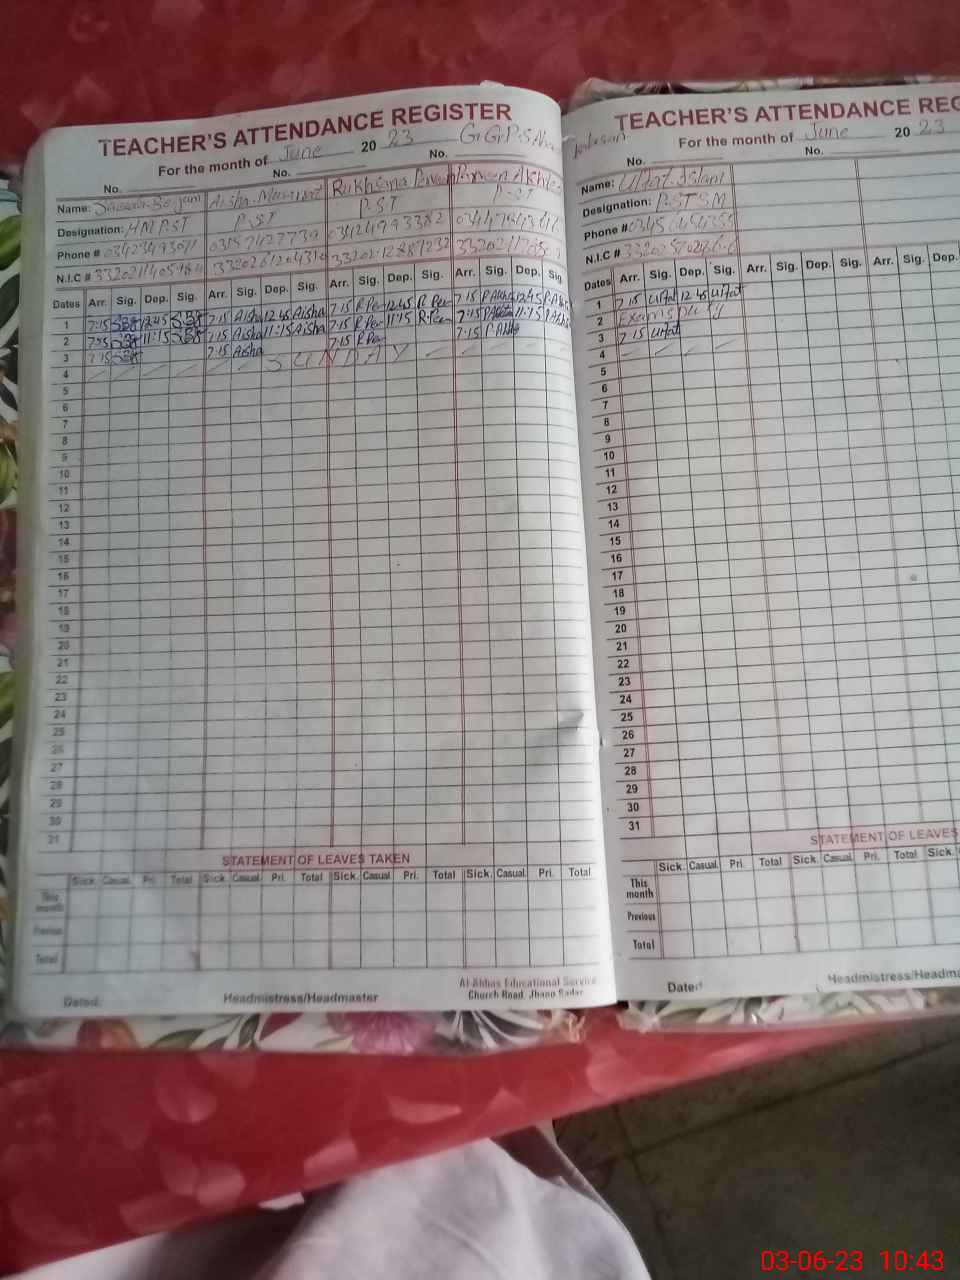 TEACHER'S ATTENDANCE REGISTER
For the month of June 20 23 G.G.P.S
No. No. No.
Name: Begum Aisha Musarrat Rukhsana Parveen Parveen Akhtar
Designation: HM PST PST PST PST
Phone # 03157427739 03424993382
N.I.C #
Dates Arr. Sig. Dep. Sig. Arr. Sig. Dep. Sig. Arr. Sig. Dep. Sig. Arr. Sig. Dep. Sig.
1 7:15 12:45 7:15 Aisha 12:45 Aisha 7:15 R Per 12:45 R Per 7:15 P.Akh 12:45 P.Akh
2 7:15 11:15 7:15 Aisha 11:15 Aisha 7:15 R Per 11:15 R Per 7:15 11:15
3 7:15 7:15 Aisha 7:15 R Per 7:15
4 SUNDAY
5
6
7
8
9
10
11
12
13
14
15
16
17
18
19
20
21
22
23
24
25
26
27
28
29
30
31
STATEMENT OF LEAVES TAKEN
Sick. Casual. Pri. Total Sick. Casual. Pri. Total Sick. Casual. Pri. Total Sick. Casual. Pri. Total
This month
Previous
Total
Dated: Headmistress/Headmaster
Al-Abbas Educational Service
Church Road, Jhang Sadar
TEACHER'S ATTENDANCE REG
For the month of June 20 23
No. No.
Name: Ulfat Islam
Designation: PST SM
Phone #
N.I.C #
Dates Arr. Sig. Dep. Sig. Arr. Sig. Dep. Sig. Arr. Sig. Dep.
1 7:15 Ulfat 12:45 Ulfat
2 Exam
3 7:15 Ulfat
4
5
6
7
8
9
10
11
12
13
14
15
16
17
18
19
20
21
22
23
24
25
26
27
28
29
30
31
STATEMENT OF LEAVES
Sick. Casual. Pri. Total Sick. Casual. Pri. Total Sick.
This month
Previous
Total
Dated Headmistress/Headma
03-06-23 10:43